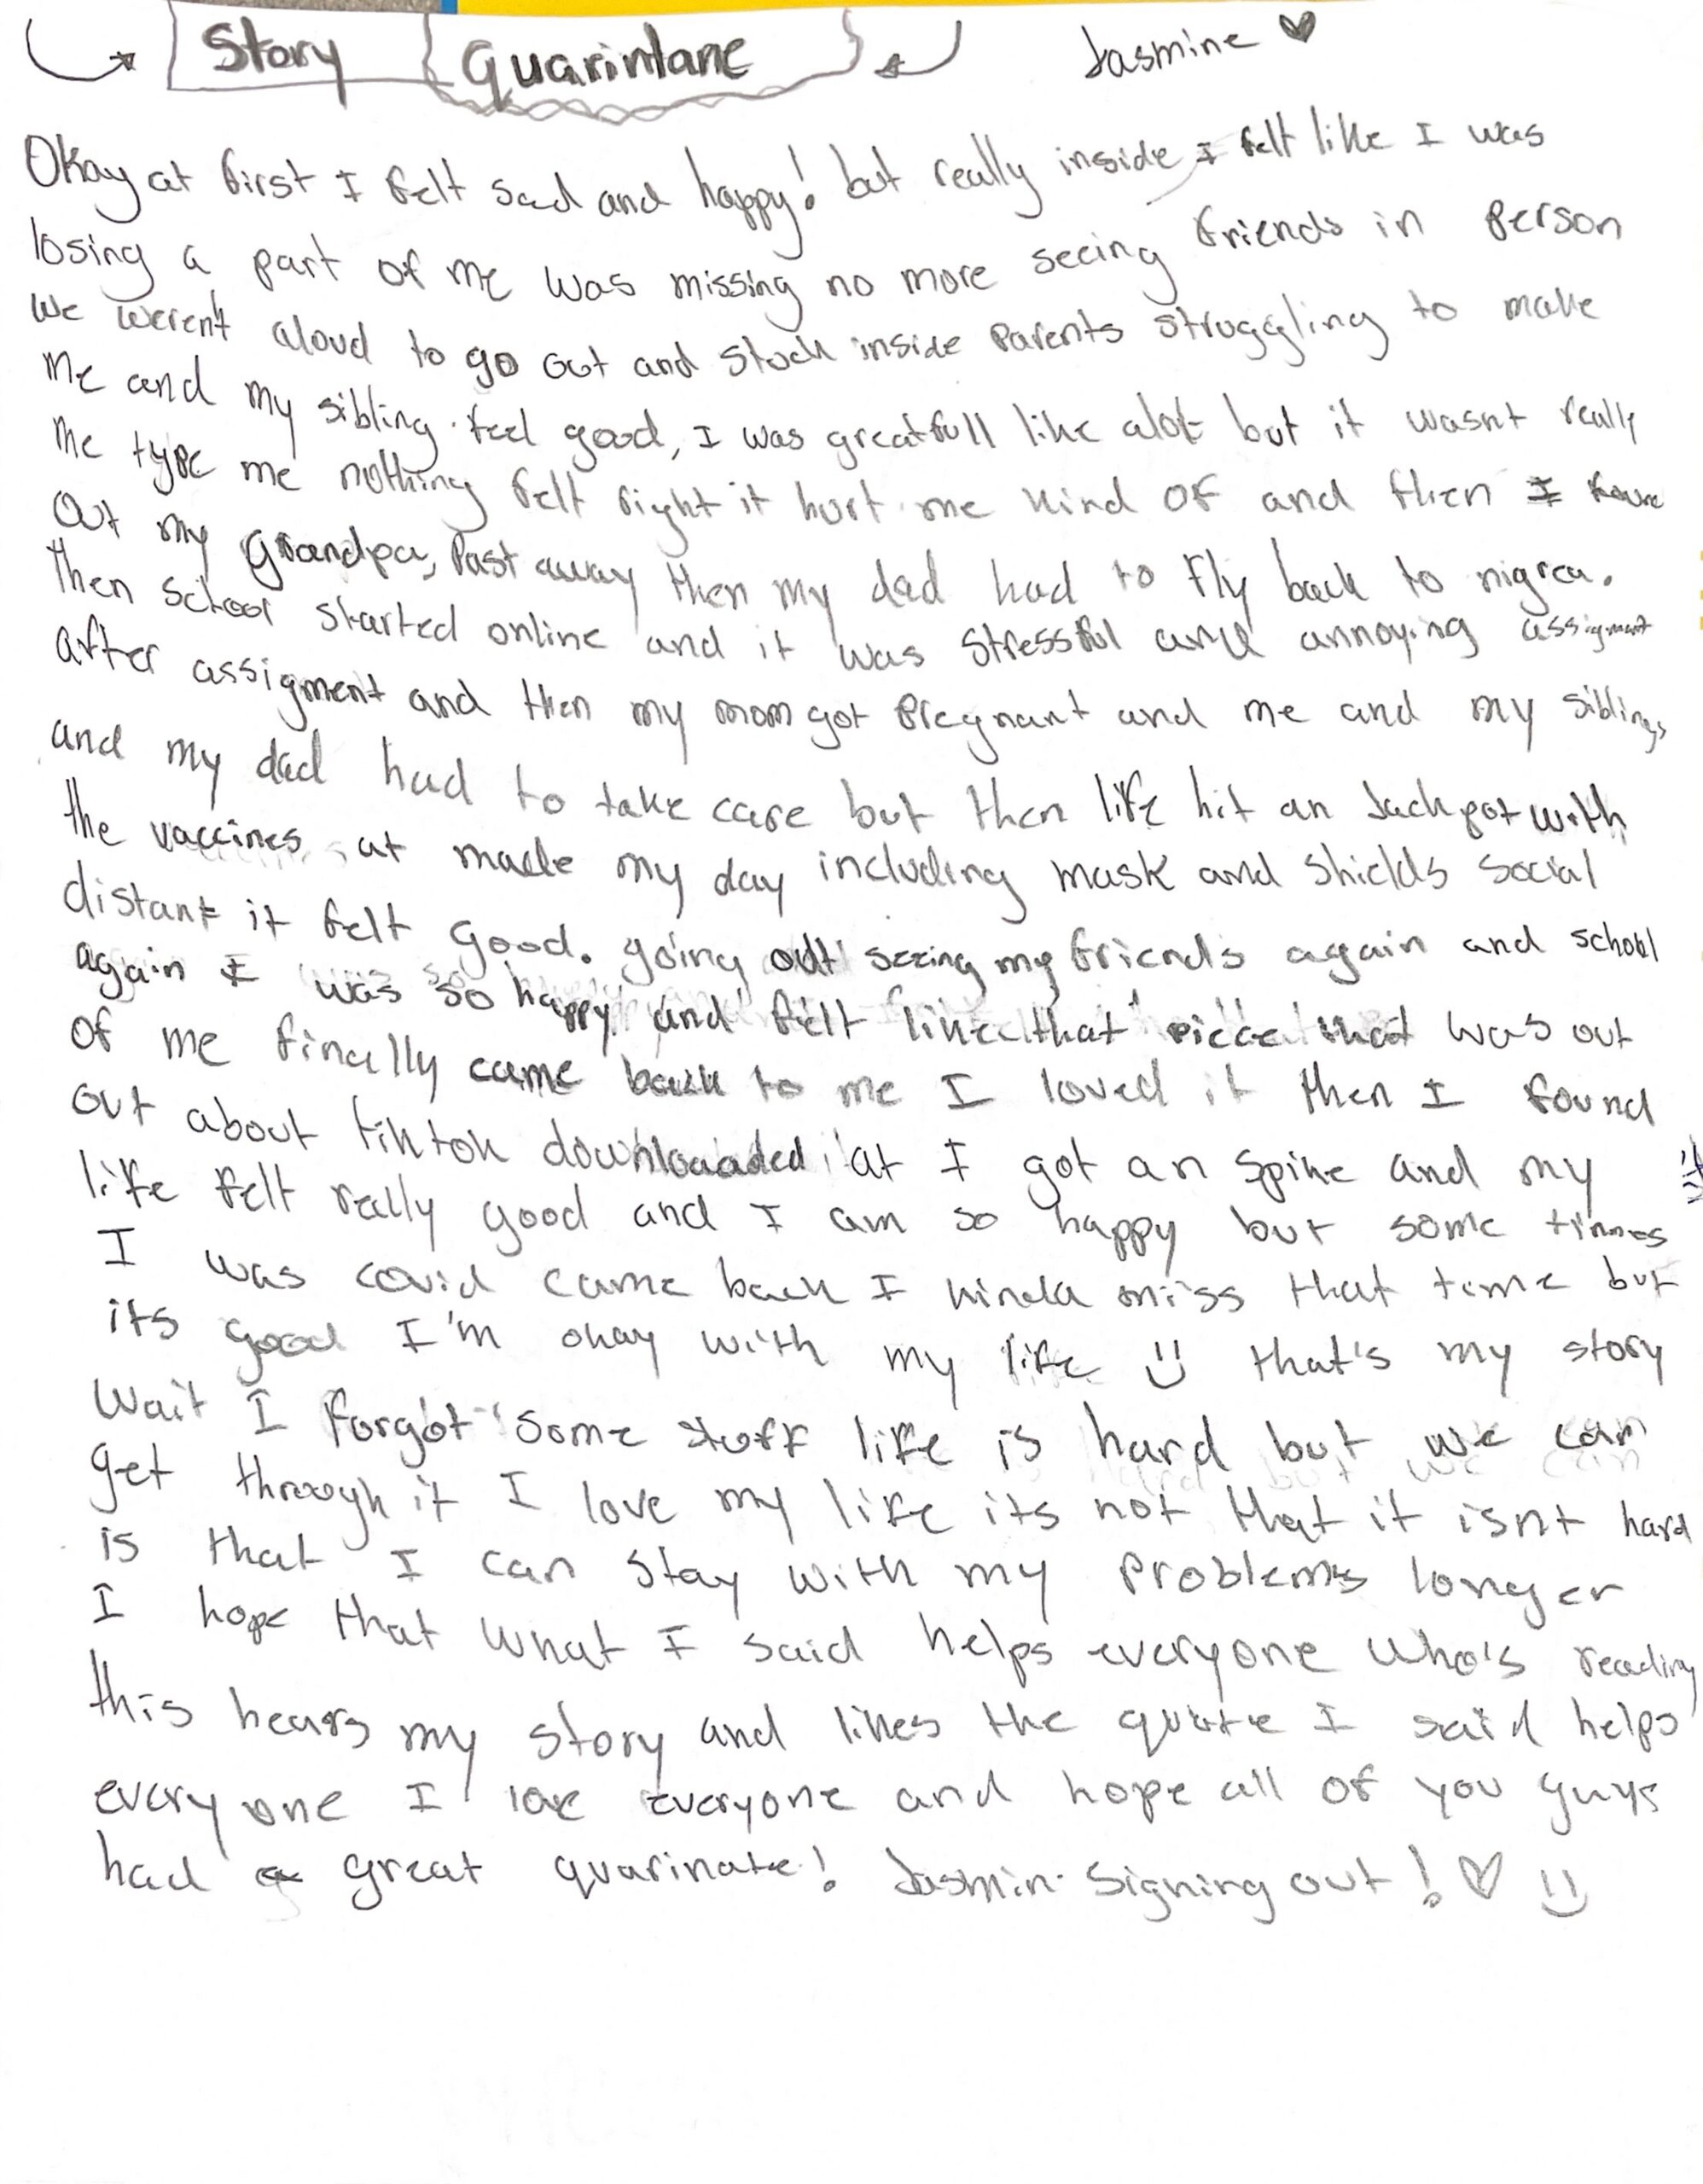 Story Quarintane Jasmine
Okay at first I felt sad and happy! but really inside I felt like I was
losing a part of me was missing no more seeing friends in person
we weren't aloud to go out and stuck inside parents struggling to make
me and my sibling feel good, I was greatfull like alot but it wasnt really
me type me nothing felt right it hurt me kind of and then I
out my grandpa, past away then my dad had to fly back to nigrea.
then school started online and it was stressful and annoying assigment
after assigment and then my mom got pregnant and me and my siblings
and my dad had to take care but then life hit an Jackpot with
the vaccines at made my day including mask and shields social
distant it felt good. going out seeing my friends again and school
again I was so happy and felt like that piece that was out
of me finally came back to me I loved it then I found
out about tiktok downloaded at I got an spike and my
life felt really good and I am so happy but some times
I was covid came back I kinda miss that time but
its good I'm okay with my life that's my story
Wait I forgot some stuff life is hard but we can
get through it I love my life its not that it isnt hard
is that I can stay with my problems longer
I hope that what I said helps everyone who's reading
this hears my story and likes the quote I said helps
every one I love everyone and hope all of you guys
had a great quarinate! Jasmin Signing out!